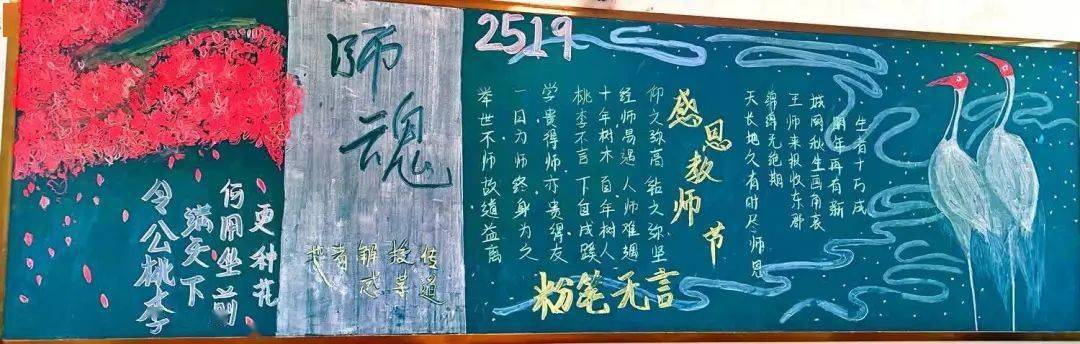 令公桃李
满天下
何用堂前
更种花
师魂
传道
授業
解惑
者
也
2519
仰之弥高 钻之弥坚
经师易遇 人师难遇
十年树木 百年树人
桃李不言 下自成蹊
学贵得师 亦贵得友
一日为师 终身为之
举世不师 故道益离
感恩教师节
粉笔无言
明年再有新
城阙秋生画角哀
王师未报收东郡
绵绵无绝期
天长地久有时尽师恩